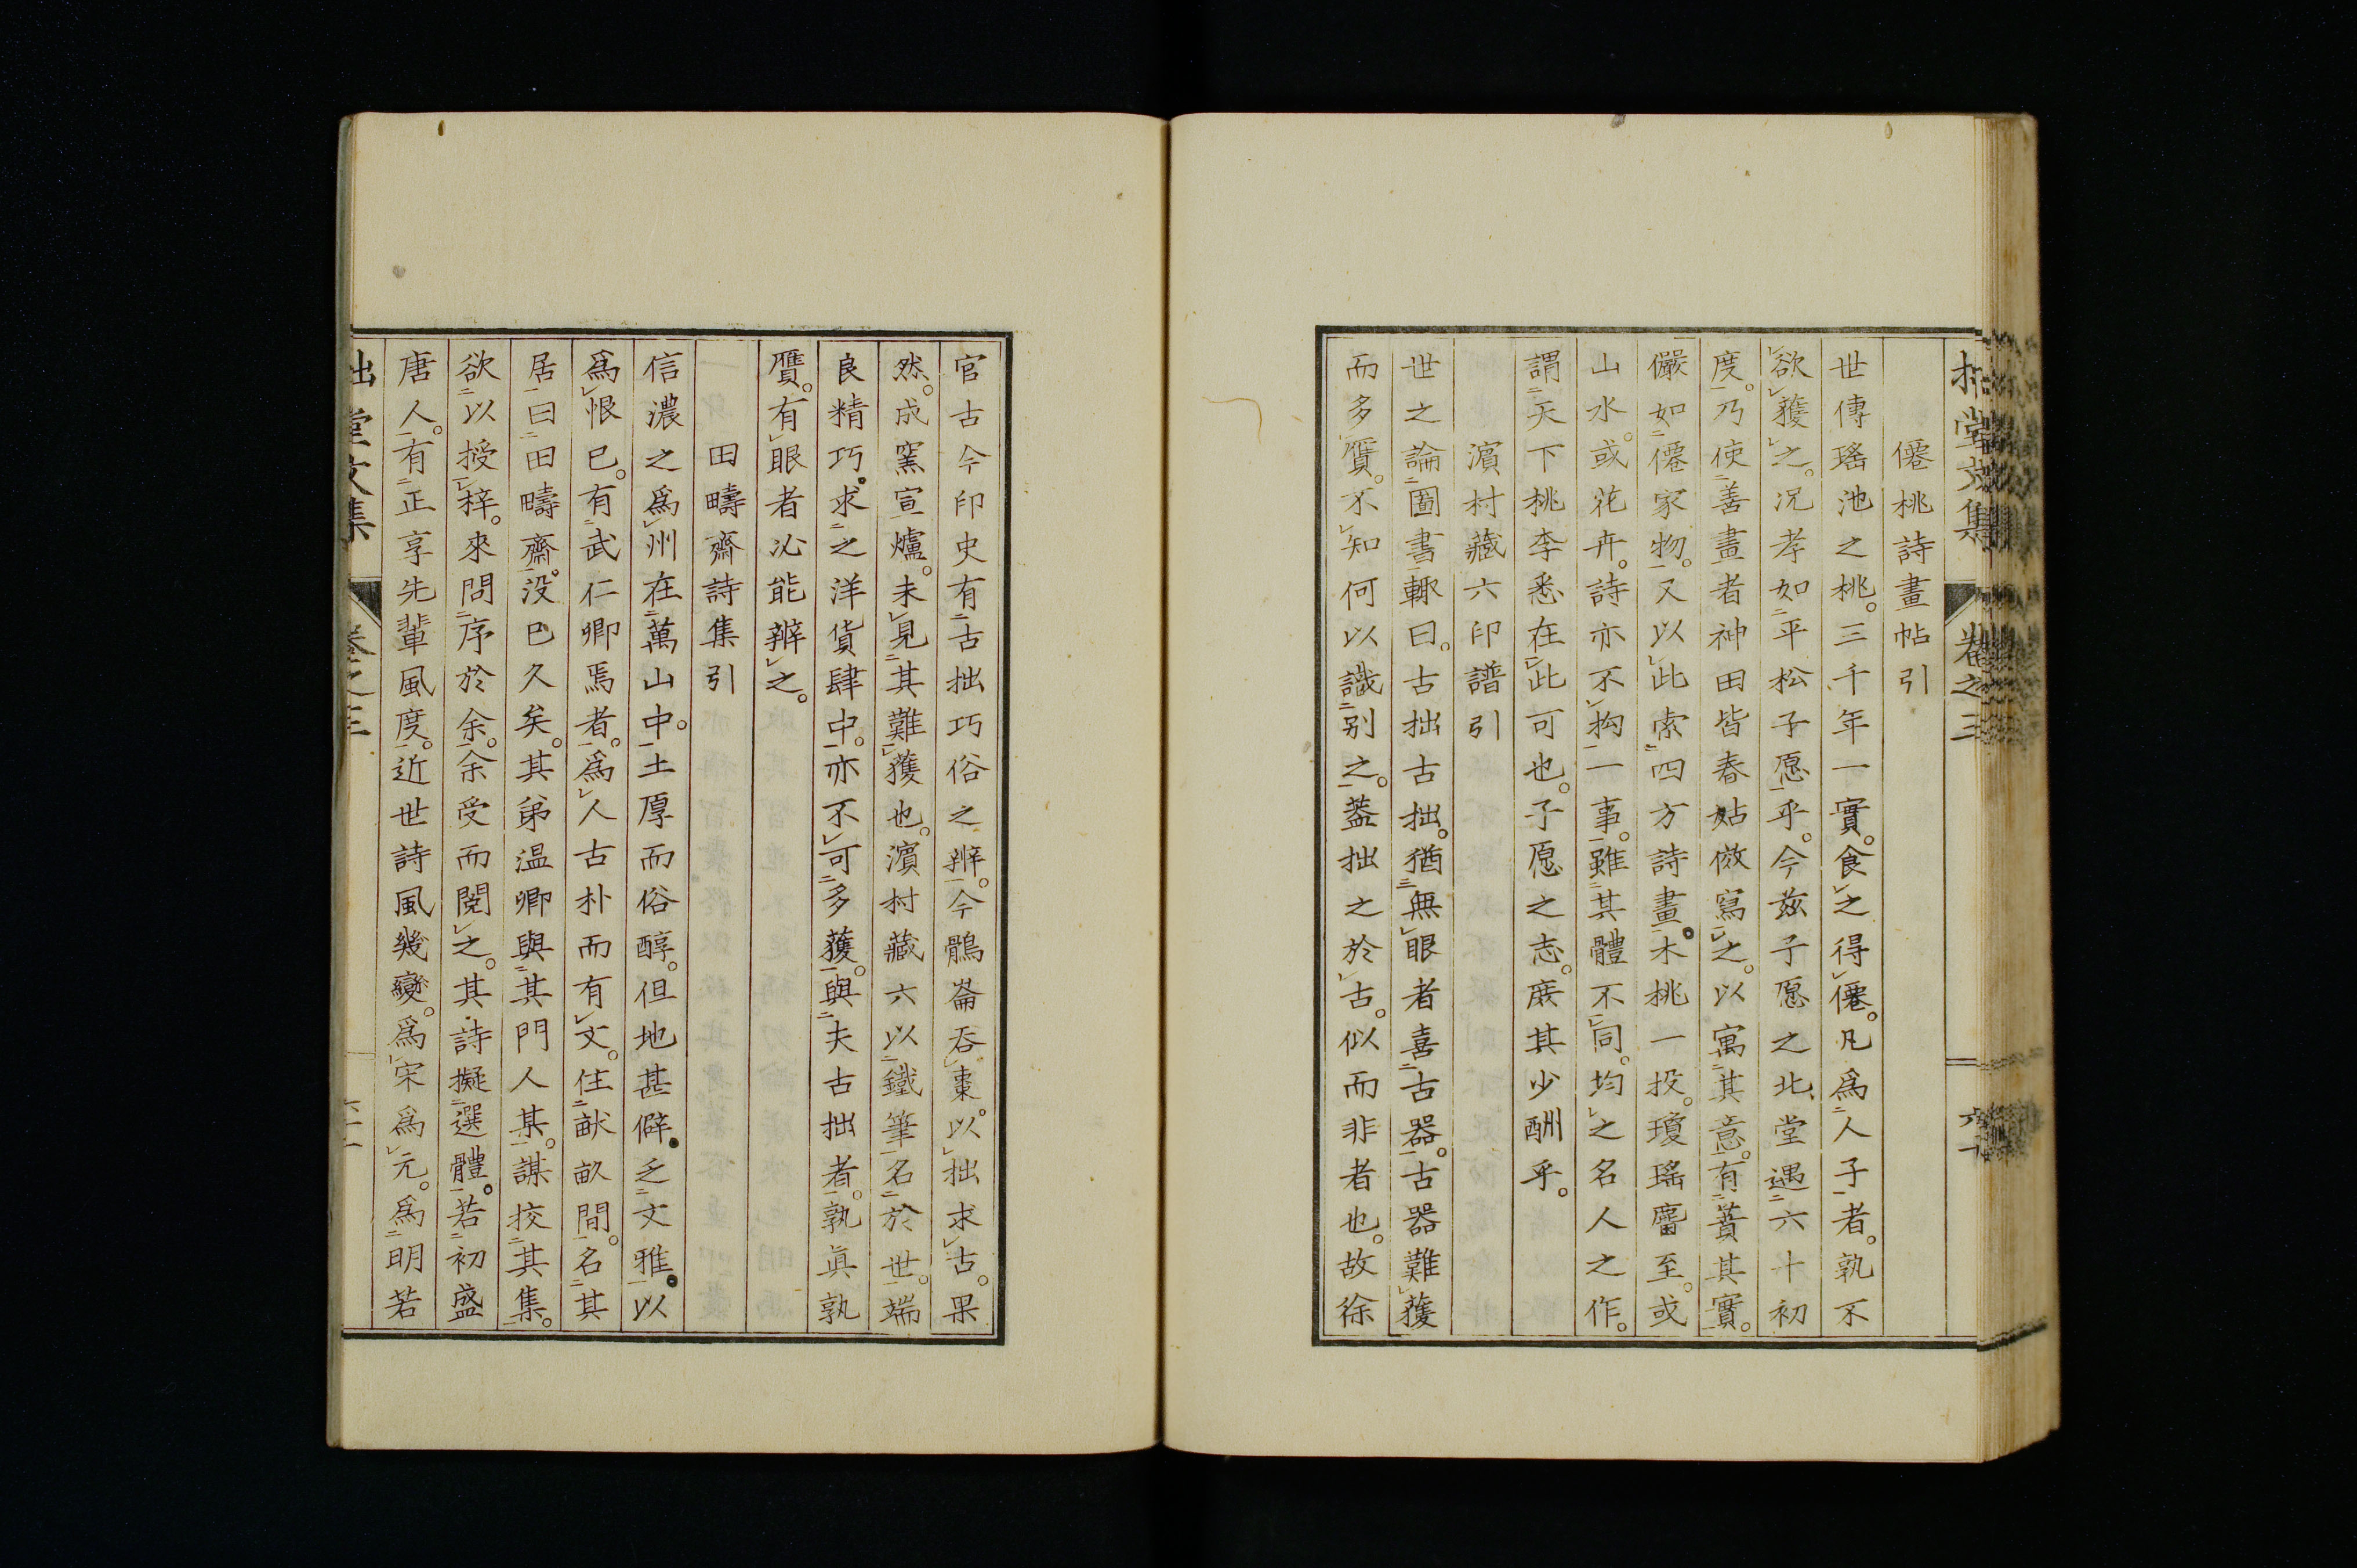 拙堂文集 卷之三 六十
僊桃詩畫帖引
世傳瑤池之桃。三千年一實。食之得僊。凡爲人子者。孰不
欲獲之。況孝如平松子愿乎。今茲子愿之北堂遇六十初
度。乃使善畫者神田皆春姑倣寫之。以寓其意。有蕡其實。
儼如僊家物。又以此索四方詩畫。木桃一投。瓊瑤麕至。或
山水。或花卉。詩亦不拘一事。雖其體不同。均之名人之作。
謂天下桃李悉在此可也。子愿之志。庶其少酬乎。
濱村藏六印譜引
世之論圖書輒曰。古拙古拙。猶無眼者喜古器。古器難獲
而多贋。不知何以識別之。蓋拙之於古。似而非者也。故徐
官古今印史有古拙巧俗之辨。今鶻崙吞棗。以拙求古。果
然。成窯宣爐。未見其難獲也。濱村藏六以鐵筆名於世。端
良精巧。求之洋貨肆中。亦不可多獲。與夫古拙者。孰眞孰
贋。有眼者必能辨之。
田疇齋詩集引
信濃之爲州在萬山中。土厚而俗醇。但地甚僻。乏文雅。以
爲恨已。有武仁卿焉者。爲人古朴而有文。住畎畝間。名其
居曰田疇齋。沒已久矣。其弟溫卿與其門人某。謀挍其集。
欲以授梓。來問序於余。余受而閱之。其詩擬選體。若初盛
唐人。有正享先輩風度。近世詩風幾變。爲宋爲元。爲明若
拙堂文集 卷之三